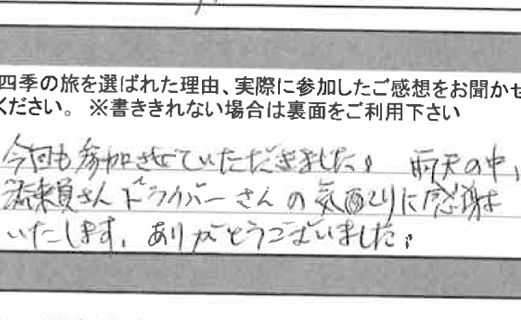 四季の旅を選ばれた理由、実際に参加したご感想をお聞かせ
ください。 ※書ききれない場合は裏面をご利用下さい
今回も参加させていただきました。 雨天の中、
添乗員さんドライバーさんの気配りに感謝
いたします。ありがとうございました。